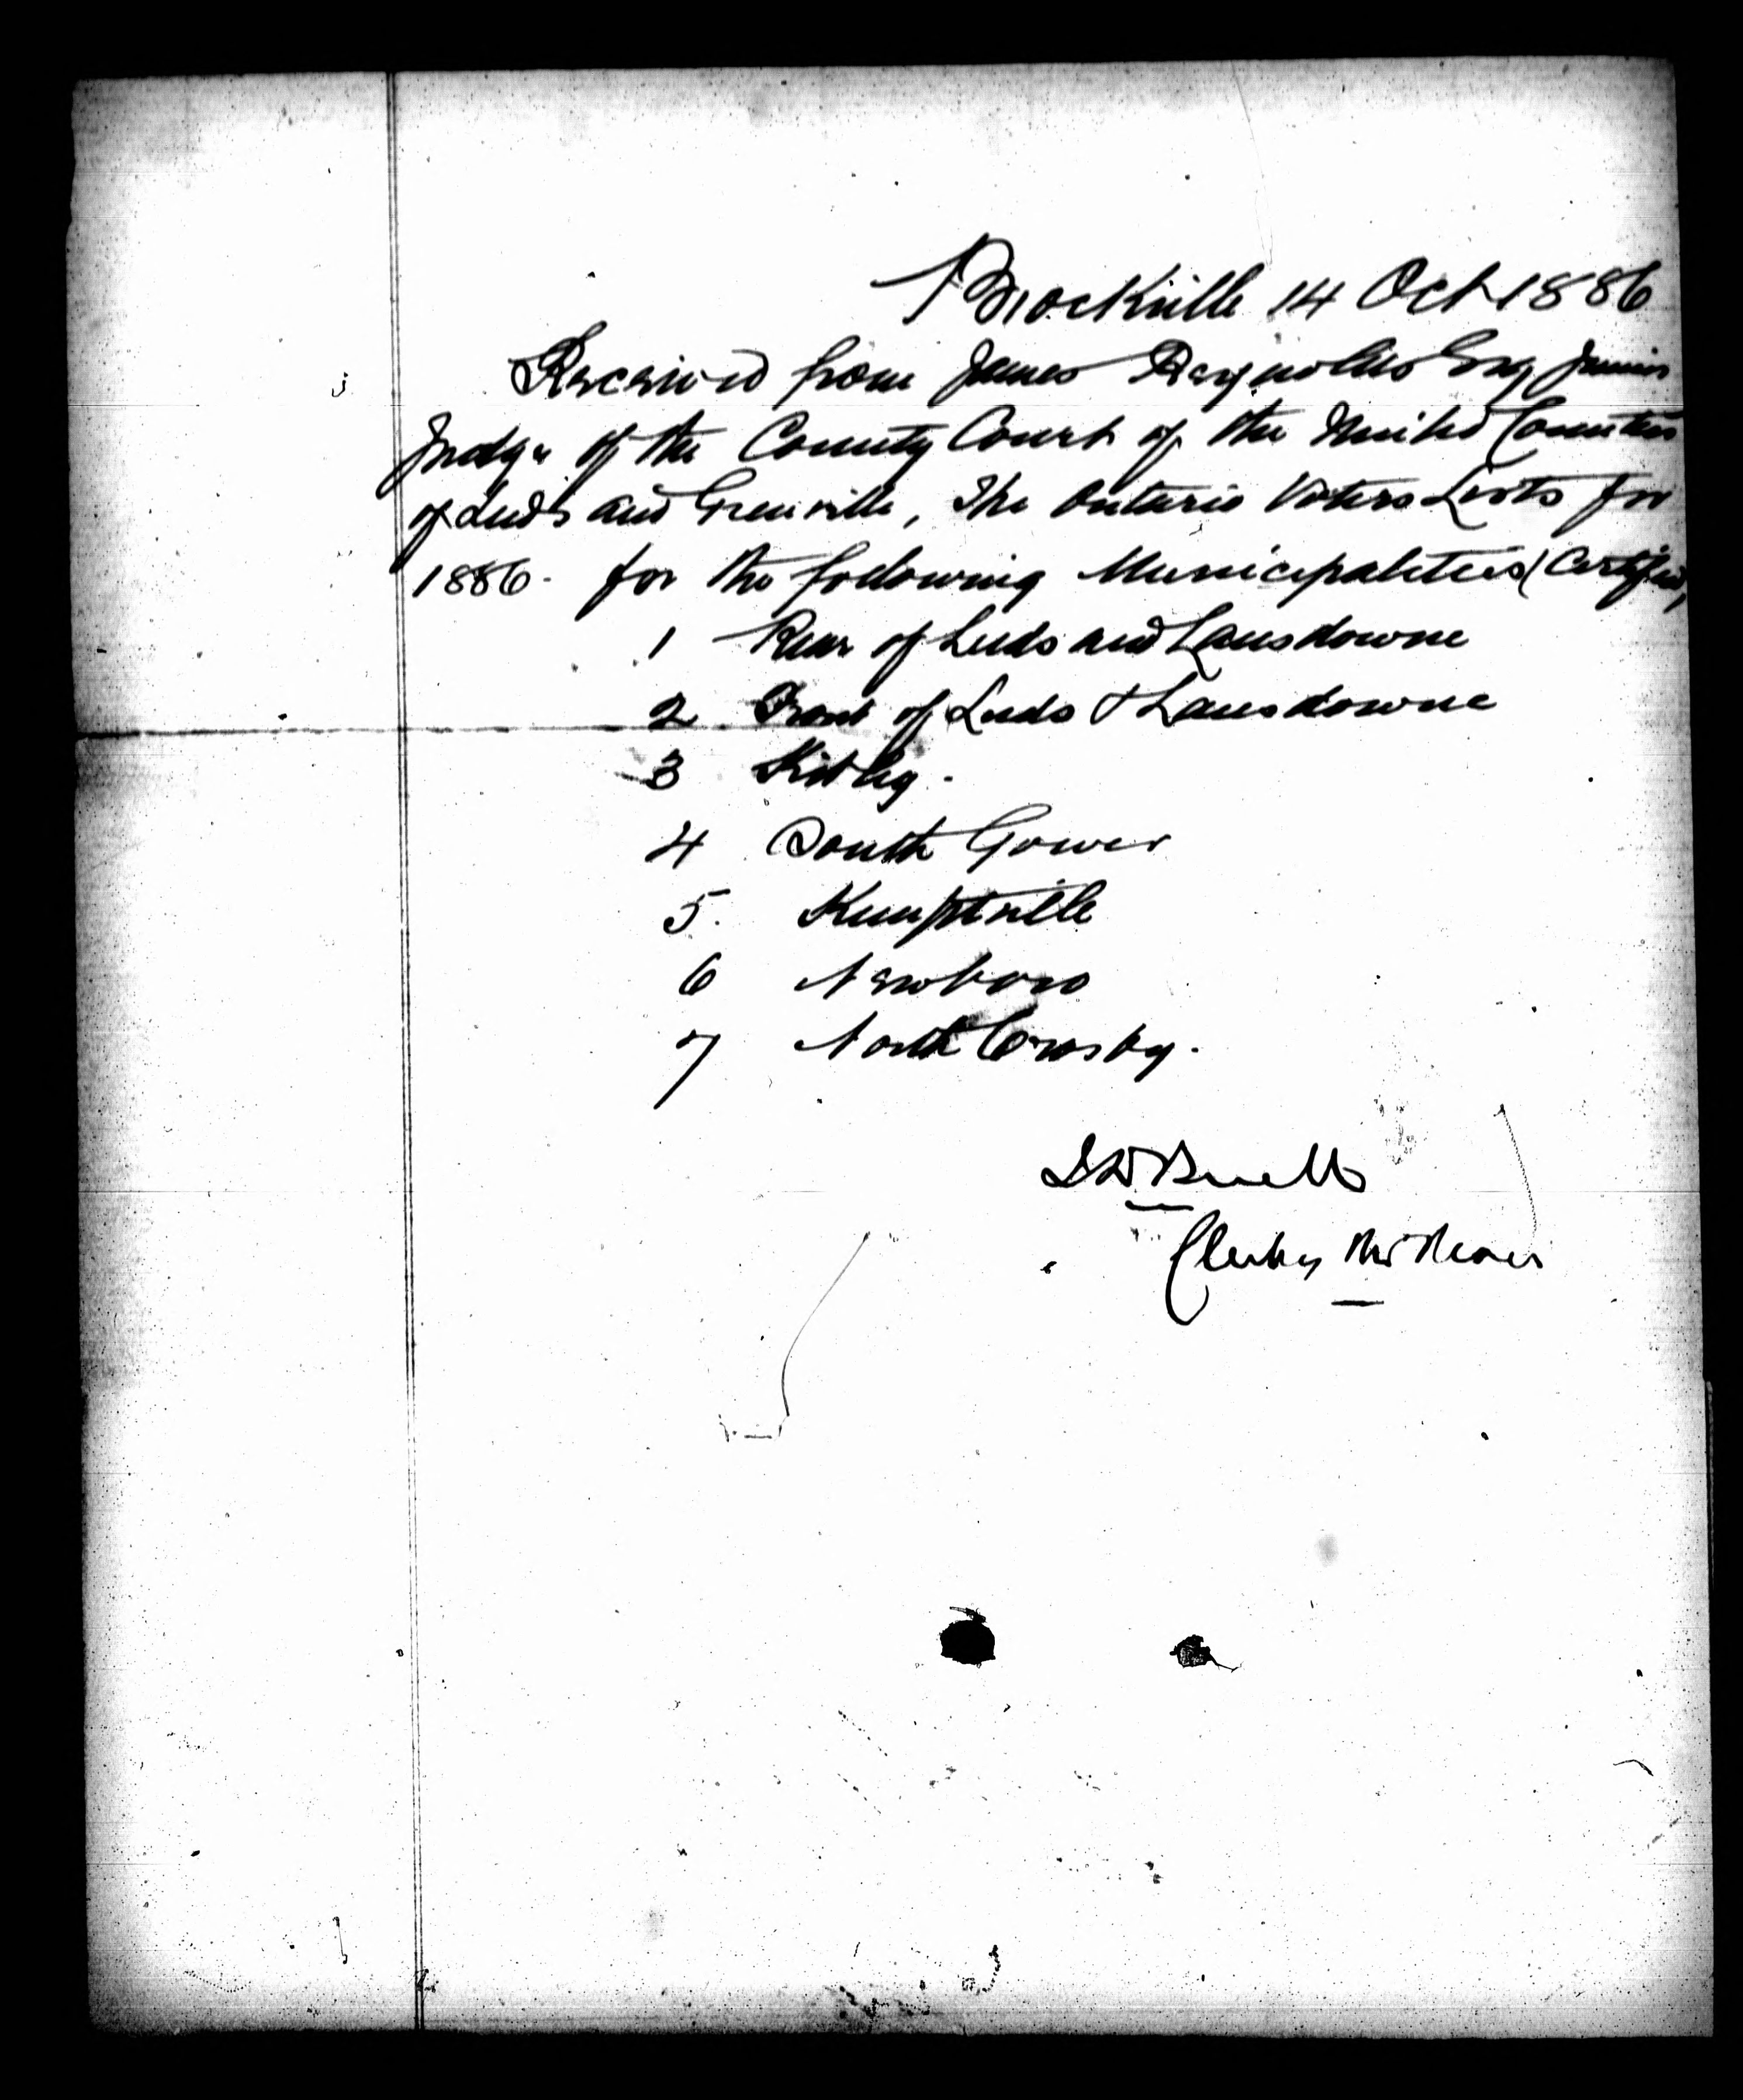 Brockville 14 Oct 1886
Received from James Reynolds Esq Junior
Judge of the County Court of the United Counties
of Leeds and Grenville, The Ontario Voters Lists for
1886. for the following Municipalities (Certified)
1 Rear of Leeds and Lansdowne
2 Front of Leeds & Lansdowne
3 Kitley.
4 South Gower
5. Kemptville
6 Newboro
7 North Crosby.
Clerk of the Peace